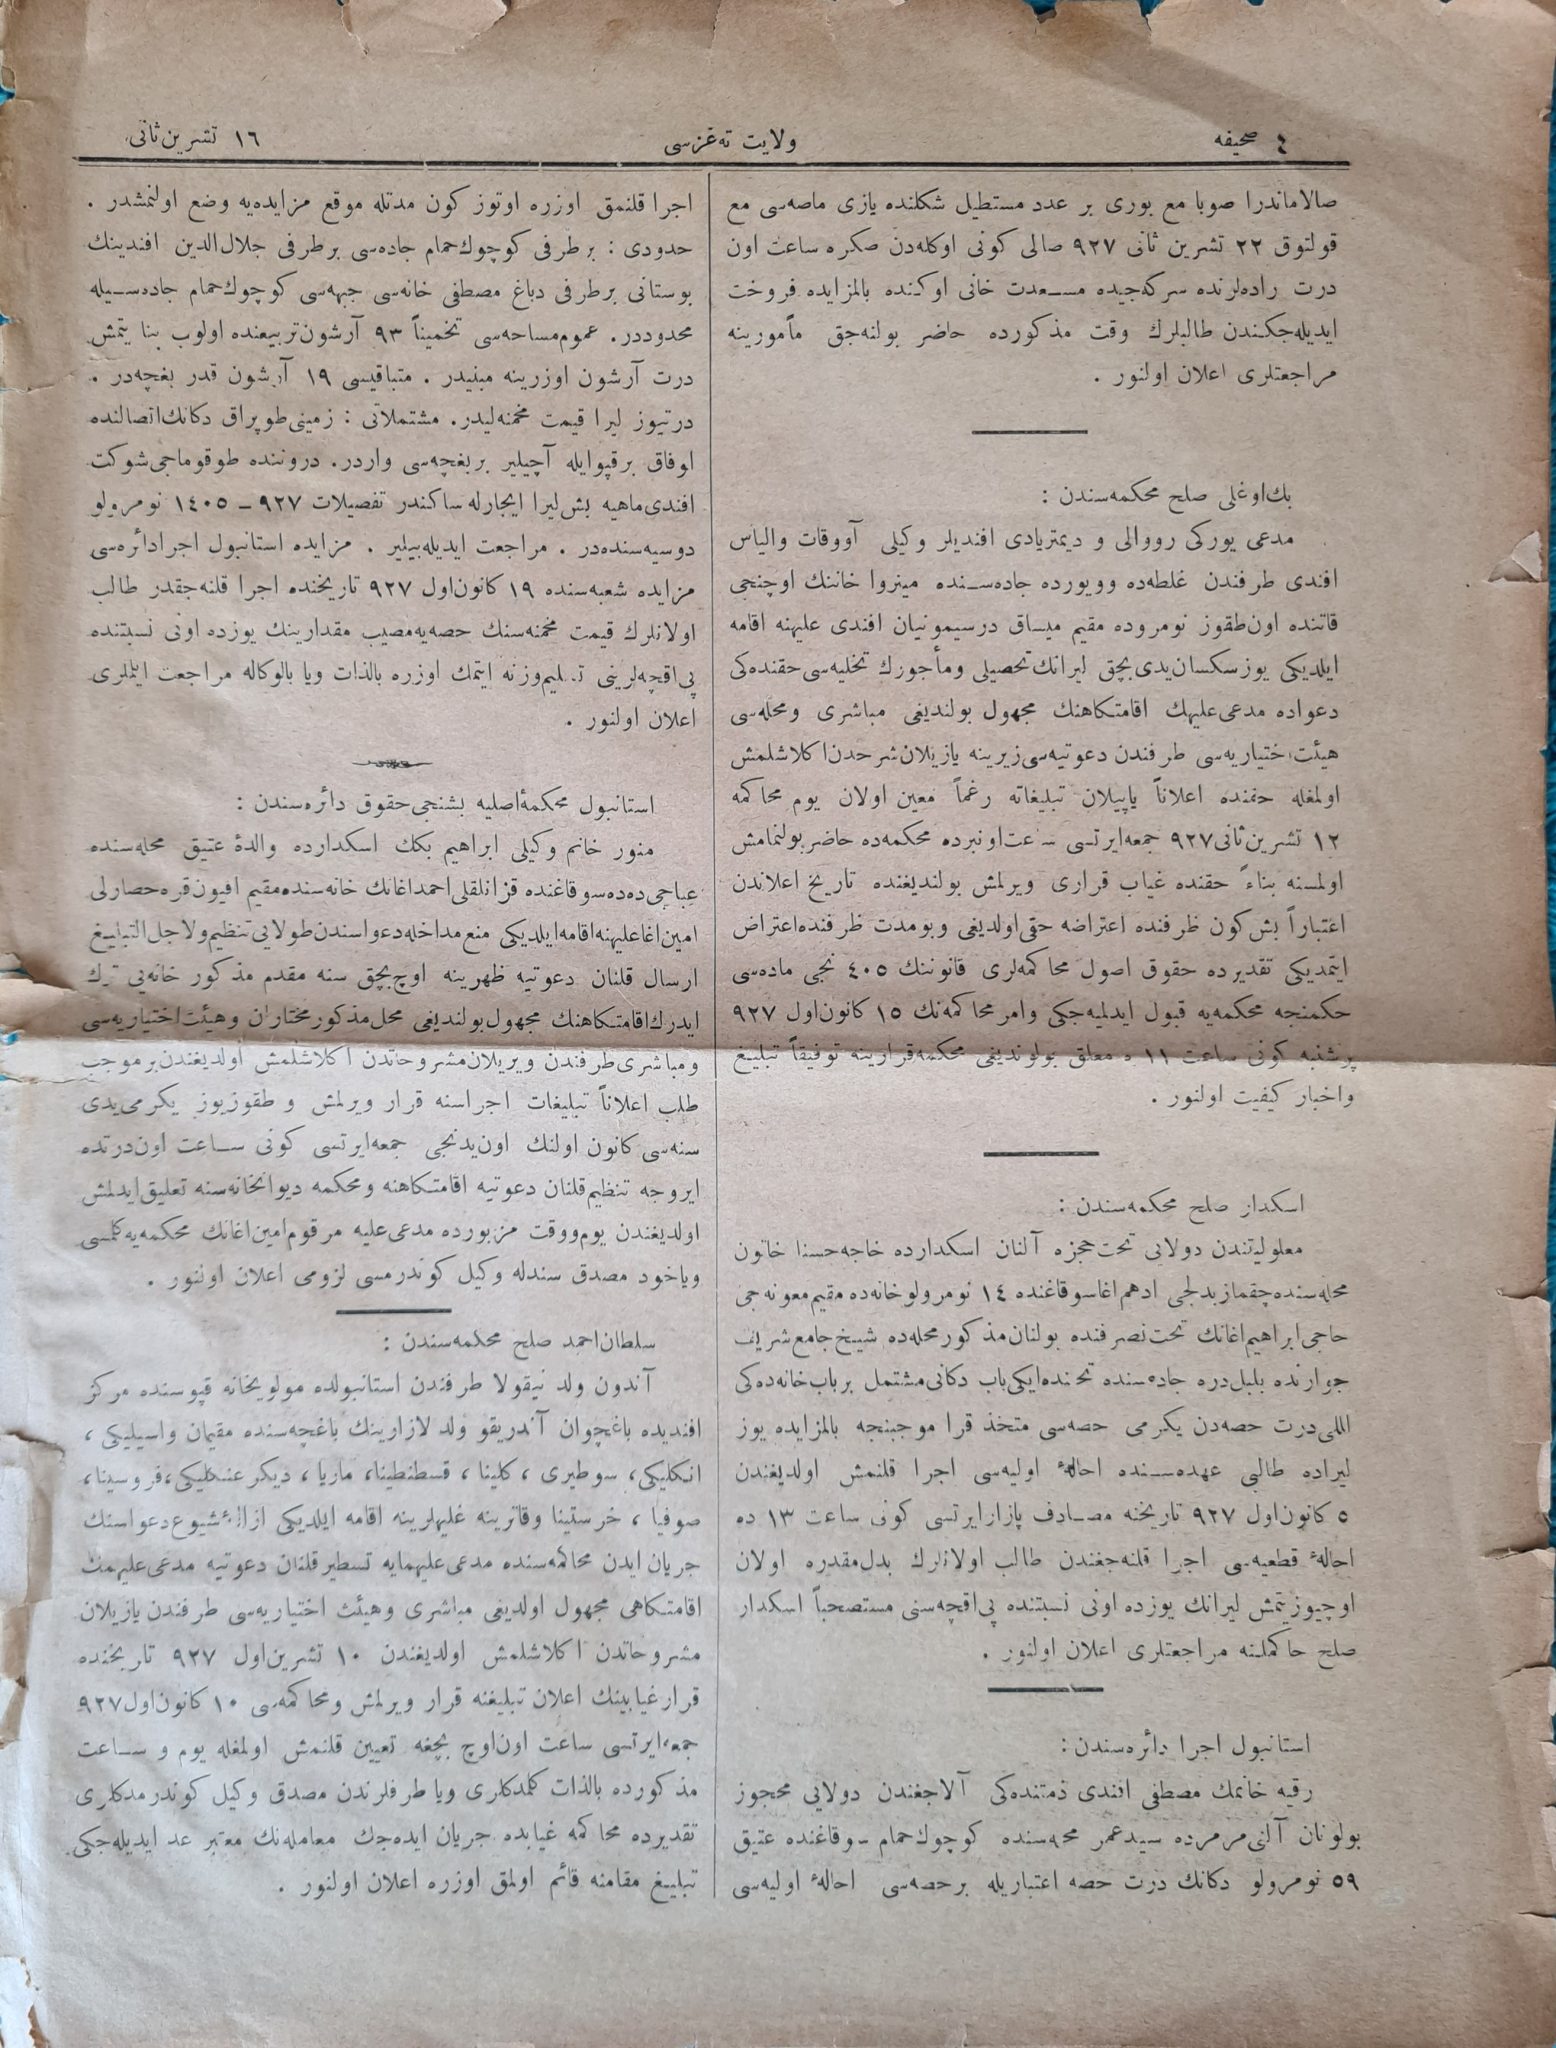 ٤ صحيفه
ولايت ته‌غزسى
١٦ تشرين‌ثانى
صالاماندرا صوبا مع بورى بر عدد مستطيل شكلنده يازى ماصه‌سى مع
قولتوق ٢٢ تشرين ثانى ٩٢٧ صالى كونى اوكله‌دن صكره ساعت اون
درت راده‌لرنده سركه‌جيده مسعدت خانى اوكنده بالمزايده فروخت
ايديله‌جكندن طالبلرك وقت مذكورده حاضر بولنه‌جق مأمورينه
مراجعتلرى اعلان اولنور .
بك‌اوغلى صلح محكمه‌سندن :
مدعى يوركى رووالى و ديمتريادى افنديلر وكيلى آووقات والياس
افندى طرفندن غلطه‌ده وويورده جاده‌سنده مينروا خاننك اوچنجى
قاتنده اون‌طقوز نومروده مقيم ميساق درسيمونيان افندى عليهنه اقامه
ايلديكى يوزسكسان‌يدى‌بچق ليرانك تحصيلى ومأجورك تخليه‌سى حقنده‌كى
دعواده مدعى‌عليهك اقامتكاهنك مجهول بولنديغى مباشرى ومحله‌سى
هيئت اختياريه‌سى طرفندن دعوتيه‌سى زيرينه يازيلان‌شرحدن‌اكلاشلمش
اولمغله حقنده اعلاناً ياپيلان تبليغاته رغماً معين اولان يوم محاكمه
١٢ تشرين‌ثانى ٩٢٧ جمعه‌ايرتسى ساعت‌اونبرده محكمه‌ده حاضربولنمامش
اولمسنه بناءً حقنده غياب قرارى ويرلمش بولنديغنده تاريخ اعلاندن
اعتباراً بش‌كون ظرفنده اعتراضه حقى‌اولديغى وبومدت ظرفنده‌اعتراض
ايتمديكى تقديرده حقوق اصول محاكمه‌لرى قانوننك ٤٠٥ نجى ماده‌سى
حكمنجه محكمه‌يه قبول ايدلميه‌جكى وامر محاكمه‌نك ١٥ كانون‌اول ٩٢٧
پرشنبه كونى ساعت ١١ ه معلق بولونديغى محكمه‌قرارينه توفيقاً تبليغ
واخبار كيفيت اولنور .
اسكدار صلح محكمه‌سندن :
معلوليتندن دولايى تحت‌حجزه آلنان اسكدارده خاجه‌حسنا خاتون
محله‌سنده‌چقمازبدلجى ادهم‌اغاسوقاغنده ١٤ نومرولوخانه‌ده مقيم‌معونه‌جى
حاجى‌ابراهيم‌اغانك تحت‌تصرفنده بولنان‌مذكورمحله‌ده شيخ‌جامع‌شريف
جوارنده بلبل‌دره جاده‌سنده تحتنده‌ايكى‌باب دكانى‌مشتمل برباب‌خانه‌ده‌كى
اللى‌درت حصه‌دن يكرمى حصه‌سى متخذ قرا موجبنجه بالمزايده يوز
ليراده طالبى عهده‌سنده احالۀ اوليه‌سى اجرا قلنمش اولديغندن
٥ كانون‌اول ٩٢٧ تاريخنه مصادف پازارايرتسى كونى ساعت ١٣ ده
احالۀ قطعيه‌سى اجرا قلنه‌جغندن طالب اولانلرك بدل‌مقدره اولان
اوچيوزيتمش ليرانك يوزده اونى نسبتنده پى‌اقچه‌سنى مستصحباً اسكدار
صلح حاكملنه مراجعتلرى اعلان اولنور .
استانبول اجرا دائره‌سندن :
رقيه خانمك مصطفى افندى ذمتنده‌كى آلاجغندن دولايى محجوز
بولونان آلتى‌مرمرده سيدعمر محه‌سنده كوچوك‌حمام سوقاغنده عتيق
٥٩ نومرولو دكانك درت حصه اعتباريله برحصه‌سى احالۀ اوليه‌سى
اجرا قلنمق اوزره اوتوز كون مدتله موقع مزايده‌يه وضع اولنمشدر .
حدودى : برطرفى كوچوك‌حمام جاده‌سى برطرفى جلال‌الدين افندينك
بوستانى برطرفى دباغ مصطفى خانه‌سى جبهه‌سى كوچوك‌حمام جاده‌سيله
محدوددر. عموم‌مساحه‌سى تخميناً ٩٣ آرشون‌تربيعنده اولوب بنا يتمش
درت آرشون اوزرينه مبنيدر . متباقيسى ١٩ آرشون قدر بغچه‌در .
درتيوز ليرا قيمت مخمنه‌ليدر. مشتملاتى : زمينى‌طوپراق دكانك‌اتصالنده
اوفاق برقپوايله آچيلير بربغچه‌سى واردر. دروننده طوقوماجى‌شوكت
افندى‌ماهيه بش‌ليرا ايجارله ساكندر تفصيلات ٩٢٧ – ١٤٠٥ نومرولو
دوسيه‌سنده‌در . مراجعت ايديله‌بيلير . مزايده استانبول اجرادائره‌سى
مزايده شعبه‌سنده ١٩ كانون‌اول ٩٢٧ تاريخنده اجرا قلنه‌جقدر طالب
اولانلرك قيمت مخمنه‌سنك حصه‌يه‌مصيب مقدارينك يوزده اونى نسبتنده
پى‌اقچه‌لرينى تسليم‌وزنه ايتمك اوزره بالذات ويا بالوكاله مراجعت ايتلرى
اعلان اولنور .
استانبول محكمۀاصليه بشنجى‌حقوق دائره‌سندن :
منور خانم وكيلى ابراهيم بكك اسكدارده والدۀ عتيق محله‌سنده
عباجى‌ده‌ده‌سوقاغنده قزانلقلى‌احمداغانك خانه‌سنده‌مقيم افيون‌قره‌حصارلى
امين‌اغاعليهنه‌اقامه‌ايلديكى منع‌مداخله‌دعواسندن‌طولايى‌تنظيم‌ولاجل‌التبليغ
ارسال قلنان دعوتيه ظهرينه اوچ‌بچق سنه مقدم مذكور خانه‌يى ترك
ايدرك‌اقامتكاهنك مجهول‌بولنديغى محل‌مذكورمختاران وهيئت‌اختياريه‌سى
ومباشرى‌طرفندن ويريلان‌مشروحاتدن اكلاشلمش اولديغندن‌برموجب
طلب اعلاناً تبليغات اجراسنه قرار ويرلمش و طقوزيوز يكرمى‌يدى
سنه‌سى كانون اولنك اون‌يدنجى جمعه‌ايرتسى كونى ساعت اون‌درتده
ايروجه تنظيم‌قلنان دعوتيه اقامتكاهنه ومحكمه ديوانخانه‌سنه تعليق‌ايدلمش
اولديغندن يوم‌ووقت مزبورده مدعى‌عليه مرقوم‌امين‌اغانك محكمه‌يه‌كلمسى
وياخود مصدق سندله وكيل كوندرمسى لزومى اعلان اولنور .
سلطان‌احمد صلح محكمه‌سندن :
آندون ولد نيقولا طرفندن استانبولده مولويخانه قپوسنده مركز
افنديده باغچوان آندريقو ولد لازارينك باغچه‌سنده مقيمان واسيليكى ،
انكليكى، سوطيرى ، كلينا ، قسطنطينا، ماريا ، ديكر عنكليكى،فروسينا،
صوفيا ، خرستينا وقاترينه عليهلرينه اقامه ايلديكى ازالۀشيوع‌دعواسنك
جريان ايدن محاكمه‌سنده مدعى‌عليهمايه تسطيرقلنان دعوتيه مدعى‌عليهمك
اقامتكاهى مجهول اولديغى مباشرى وهيئت اختياريه‌سى طرفندن يازيلان
مشروحاتدن اكلاشلمش اولديغندن ١٠ تشرين‌اول ٩٢٧ تاريخنده
قرارغيابينك اعلان تبليغنه قرار ويرلمش ومحاكمه‌سى ١٠ كانون‌اول٩٢٧
جمعه‌ايرتسى ساعت اون‌اوچ بچغه تعيين قلنمش اولمغله يوم و ساعت
مذكورده بالذات كلمدكلرى ويا طرفلرندن مصدق وكيل كوندرمدكلرى
تقديرده محاكمه غيابده جريان ايده‌جك معامله‌نك معتبر عد ايديله‌جكى
تبليغ مقامنه قائم اولمق اوزره اعلان اولنور .